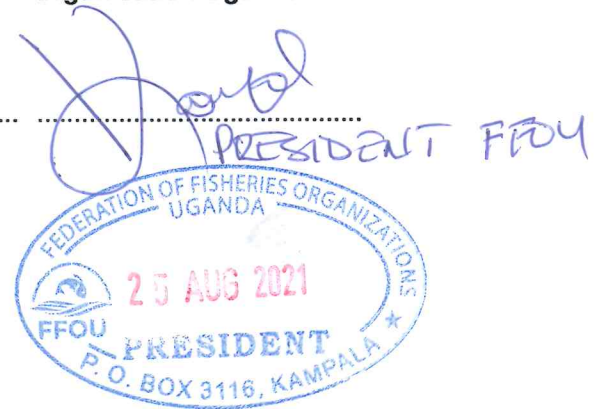 PRESIDENT FFOU
FEDERATION OF FISHERIES ORGANIZATIONS
UGANDA
25 AUG 2021
FFOU
PRESIDENT
P. O. BOX 3116, KAMPALA